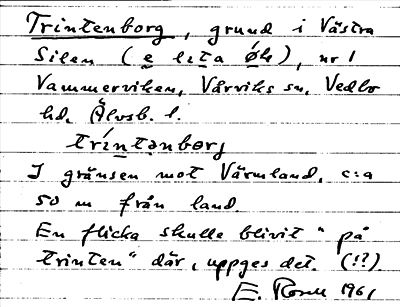 Trintenborg, grund i Västra
Silen (e lita øk), nr 1
Vammerviken, Vårviks sn, Vedbo
hd, Älvsb. l.
tríntənbərg
I gränsen mot Värmland, c:a
50 m från land.
En flicka skulle blivit "på
trinten" där, uppges det. (!?)
E. 1961